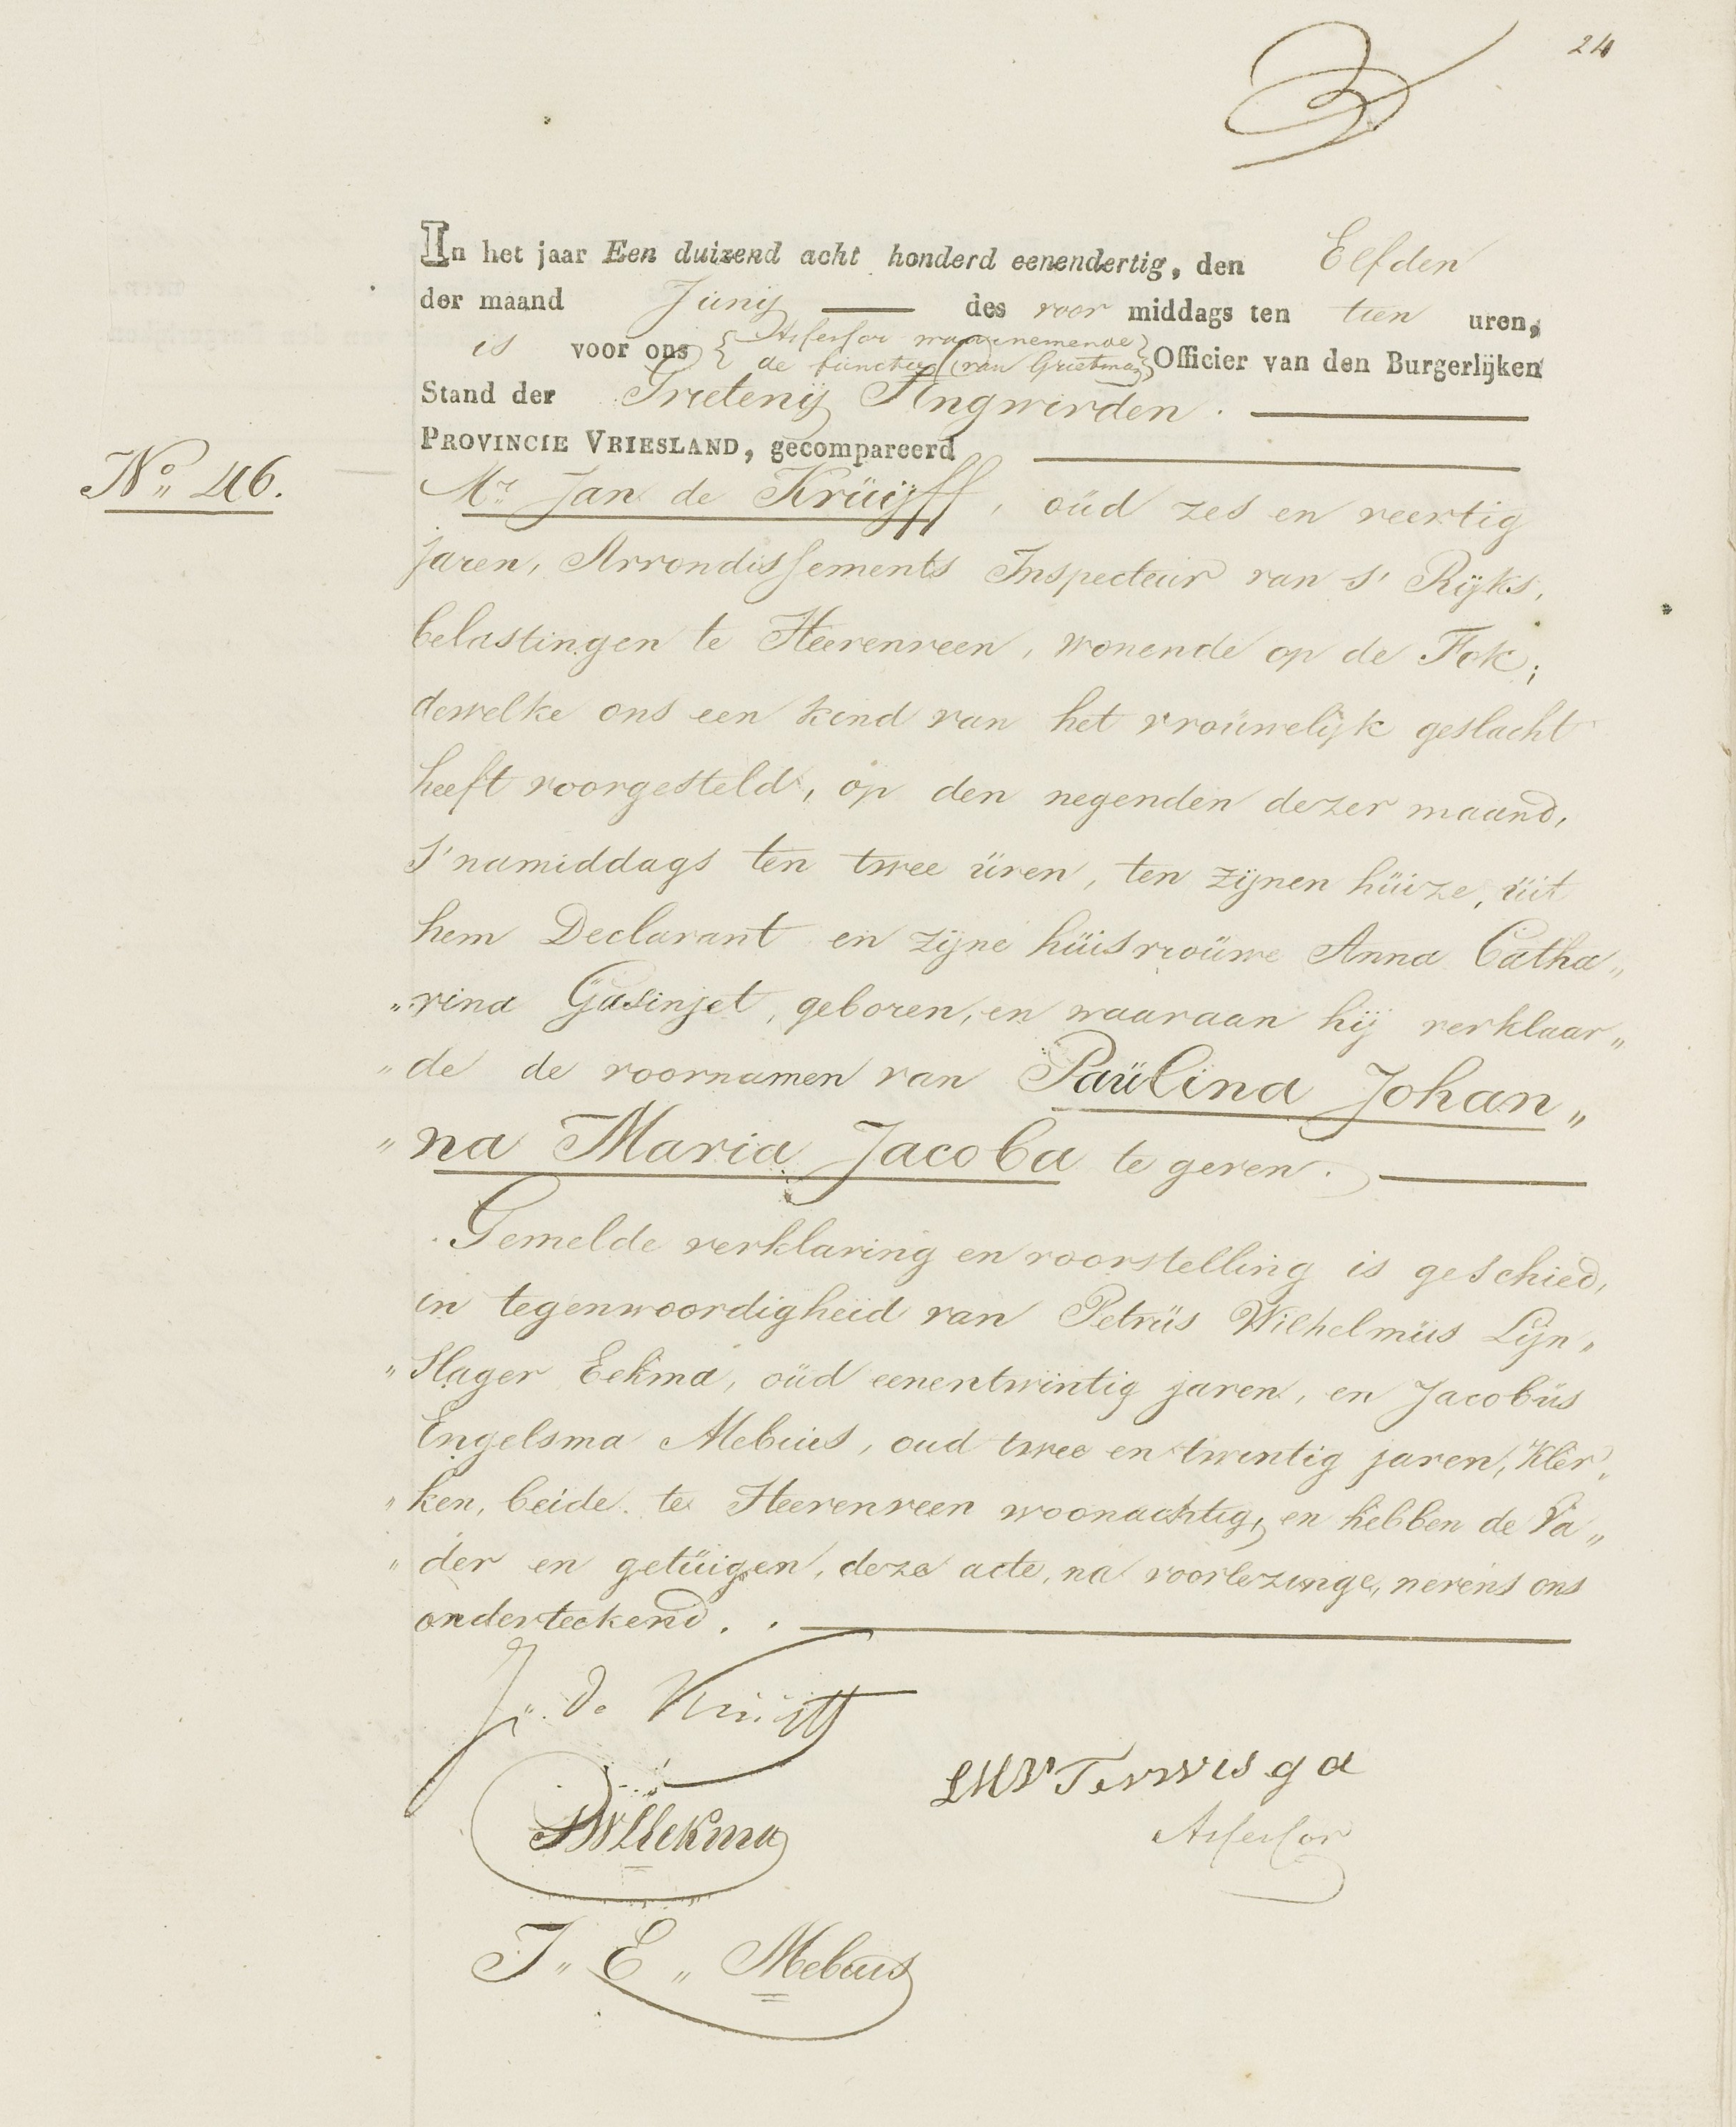 24
In het jaar Een duizend acht honderd eenendertig, den Elfden
der maand Junij des voor middags ten tien uren,
is voor ons { Assessor waarnemende
de functien van Grietman } Officier van den Burgerlijken
Stand der Grietenij Ængwirden.
PROVINCIE VRIESLAND, gecompareerd
No. 46.
Mr. Jan de Krüijff, oüd zes en veertig
jaren, Arrondissements Inspecteur van s' Rijks,
belastingen te Heerenveen, wonende op de Fok;
dewelke ons een kind van het vroüwelijk geslacht
heeft voorgesteld, op den negenden dezer maand,
s' namiddags ten twee üren, ten zijnen hüize, üit
hem Declarant en zijne hüisvroüwe Anna Catha„
„rina Gasinjet, geboren, en waaraan hij verklaar„
„de de voornamen van Paülina Johan„
„na Maria Jacoba te geven.
Gemelde verklaring en voorstelling is geschied,
in tegenwoordigheid van Petrüs Wilhelmüs Lijn„
„slager Eekma, oüd eenentwintig jaren, en Jacobüs
Engelsma Mebius, oud twee en twintig jaren, Kler„
„ken, beide te Heerenveen woonachtig, en hebben de Va„
„der en getüigen, deze acte, na voorlezinge, nevens ons
onderteekend.
J. de Krüijff
PWLEekma
LMV Terwisga
Assessor
J„ E„ Mebius